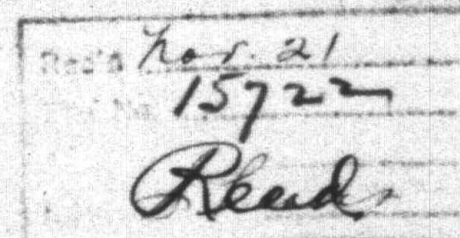 Rec'd Nov. 21
No. 15722